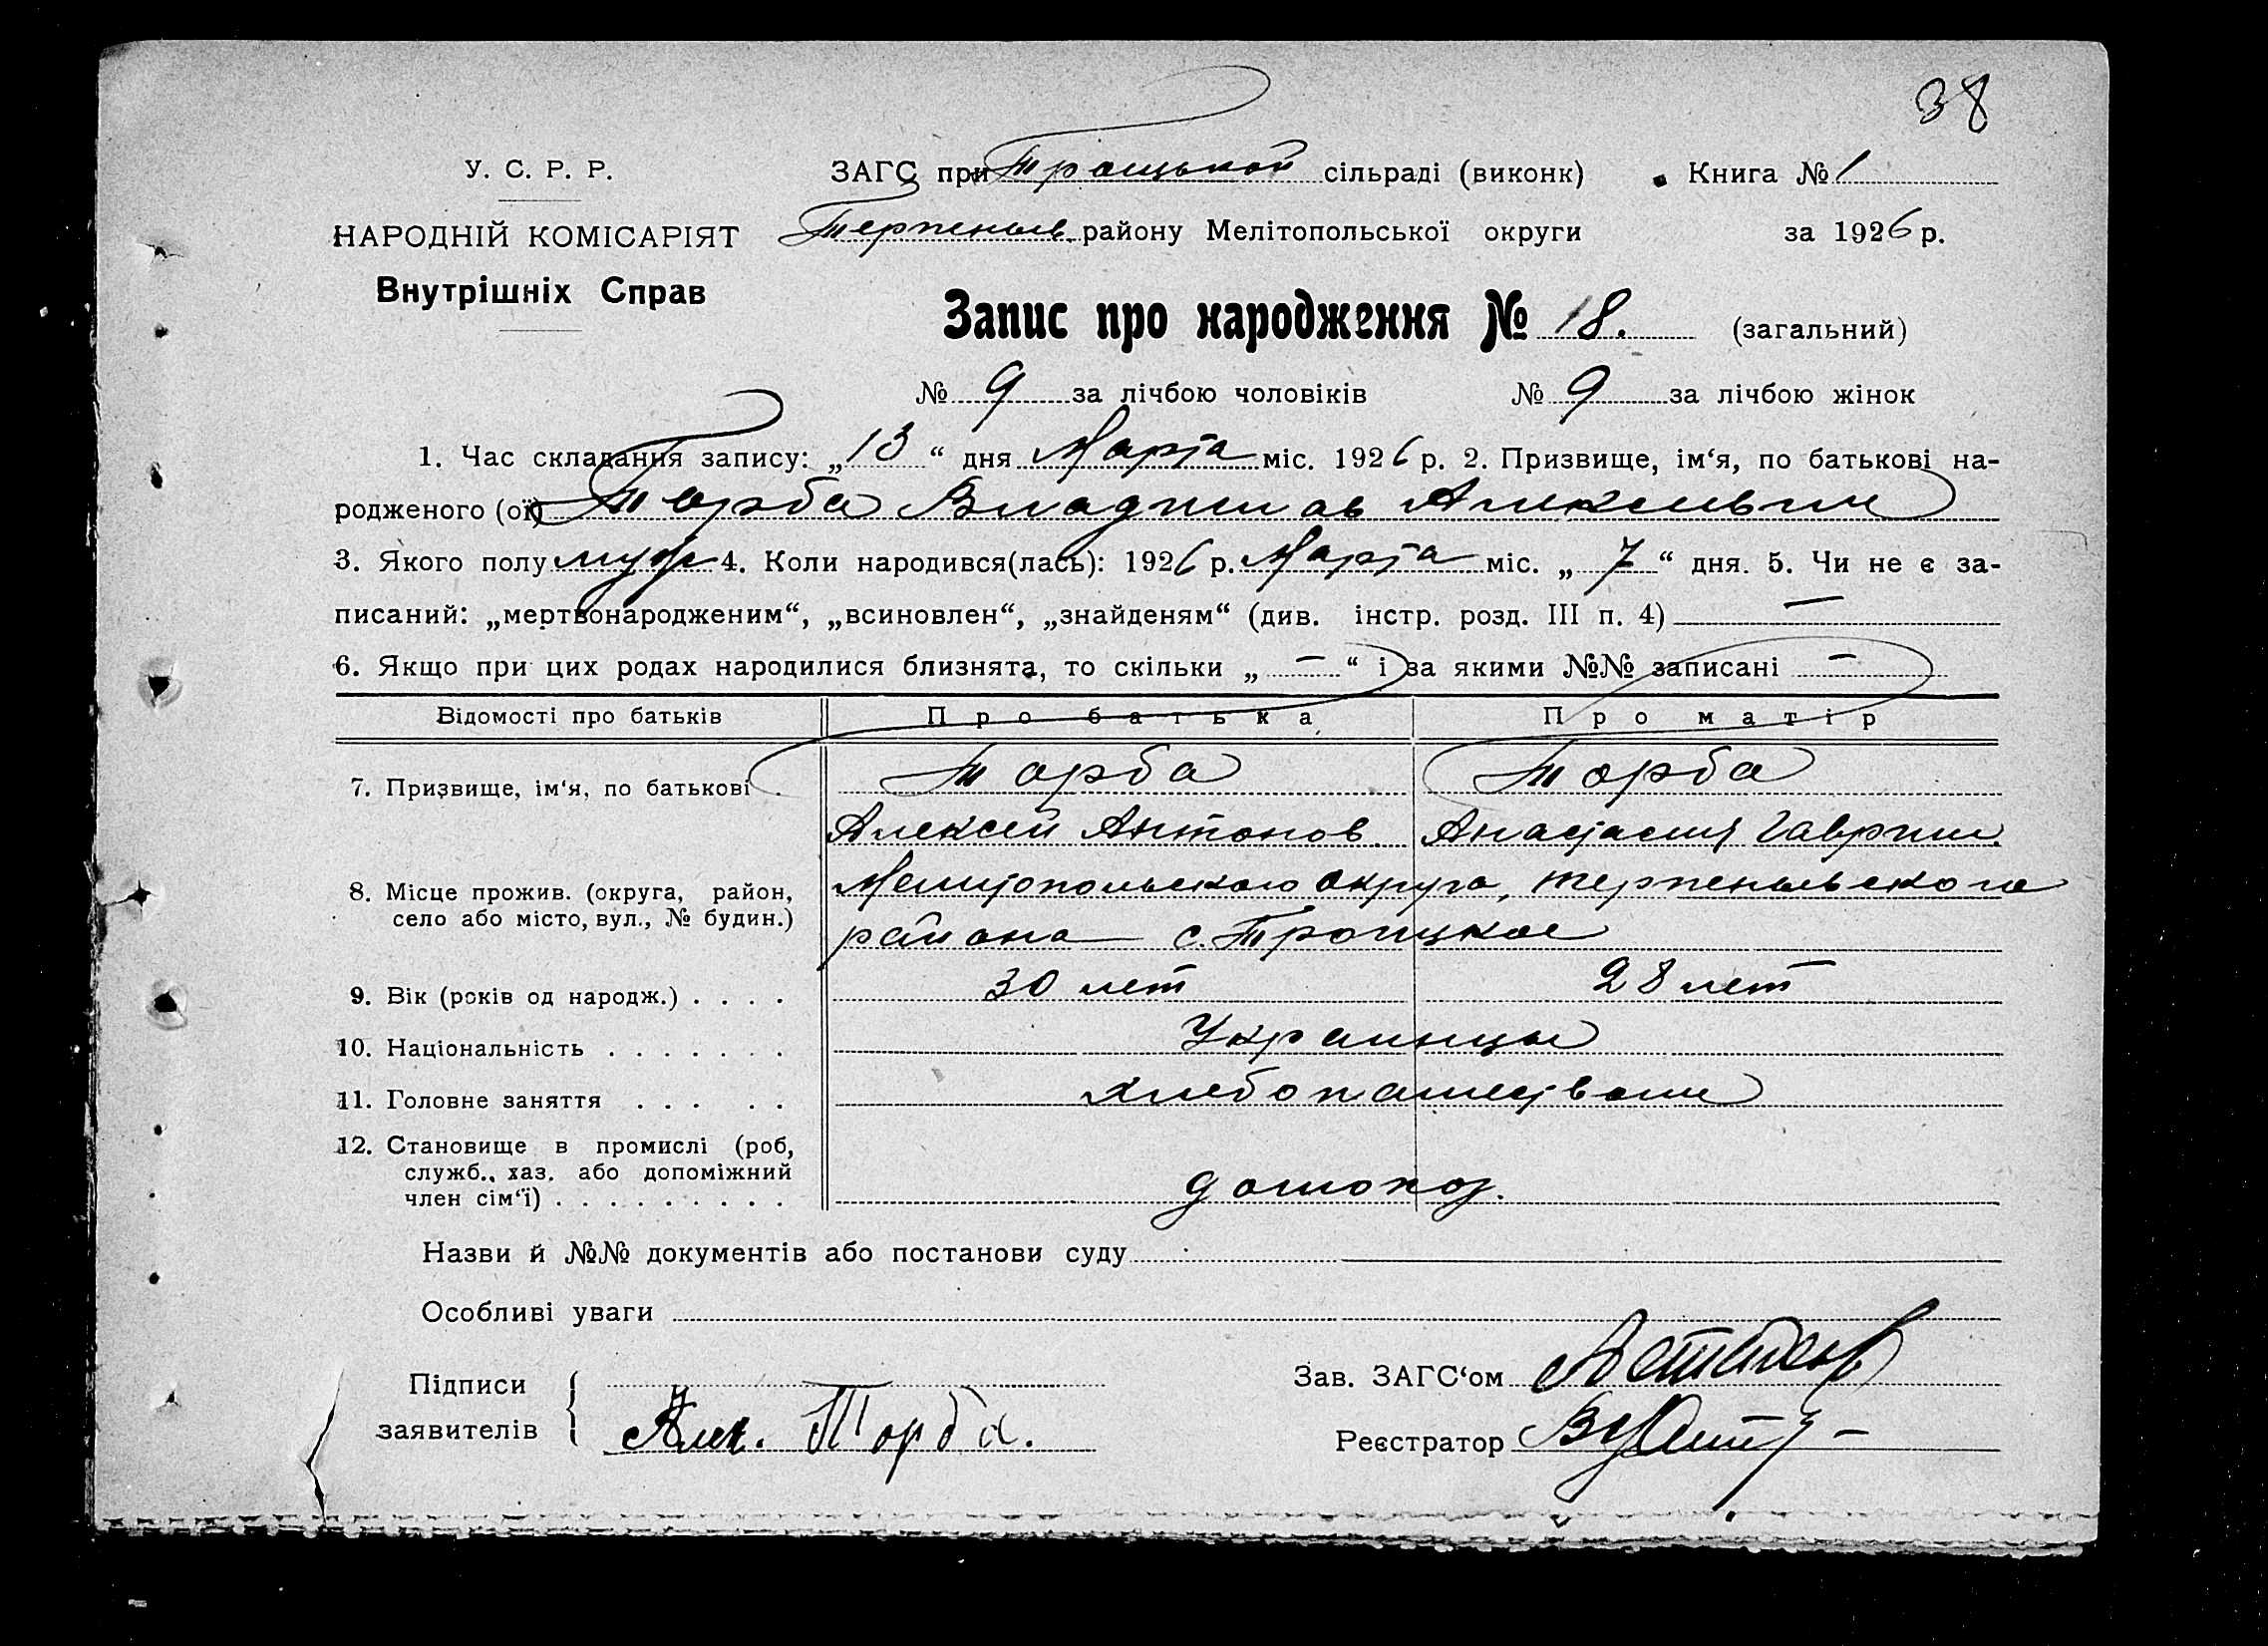 38
У. С. Р. Р.
ЗАГС при Троицькой сільраді (виконк)
Книга № 1
НАРОДНІЙ КОМІСАРІЯТ
Терпеньев. району Мелітопольської округи
за 1926 р.
Внутрішніх Справ
Запис про народження № 18. (загальний)
№ 9 за лічбою чоловіків № 9 за лічбою жінок
1. Час складання запису: „13“ дня Марта міс. 1926 р. 2. Призвище, ім‘я, по батькові на-
родженого (ої) Торба Владимир Алексеевич
3. Якого полу муж 4. Коли народився(лась): 1926 р. Марта міс. „7“ дня. 5. Чи не є за-
писаний: „мертвонародженим“, „всиновлен“, „знайденям“ (див. інстр. розд. III п. 4) —
6. Якщо при цих родах народилися близнята, то скільки „—“ і за якими №№ записані —
Відомості про батьків Про батька Про матір
7. Призвище, ім‘я, по батькові . Торба Торба
Алексей Антонов. Анастасия Гаврил.
8. Місце прожив. (округа, район, Мелитопольского округа, терпеньевского
село або місто, вул., № будин.)
района с. Троицкое
9. Вік (років од народж.) . . . . 30 лет 28 лет
10. Національність . . . . . . . Украинцы
11. Головне заняття . . . . . хлебопашеством
12. Становище в промислі (роб,
служб., хаз. або допоміжний
член сім‘ї) . . . . . . . . .
Назви й №№ документів або постанови суду
Особливі уваги
Підписи
заявителів
Алек. Торба.
Зав. ЗАГС‘ом
Реєстратор